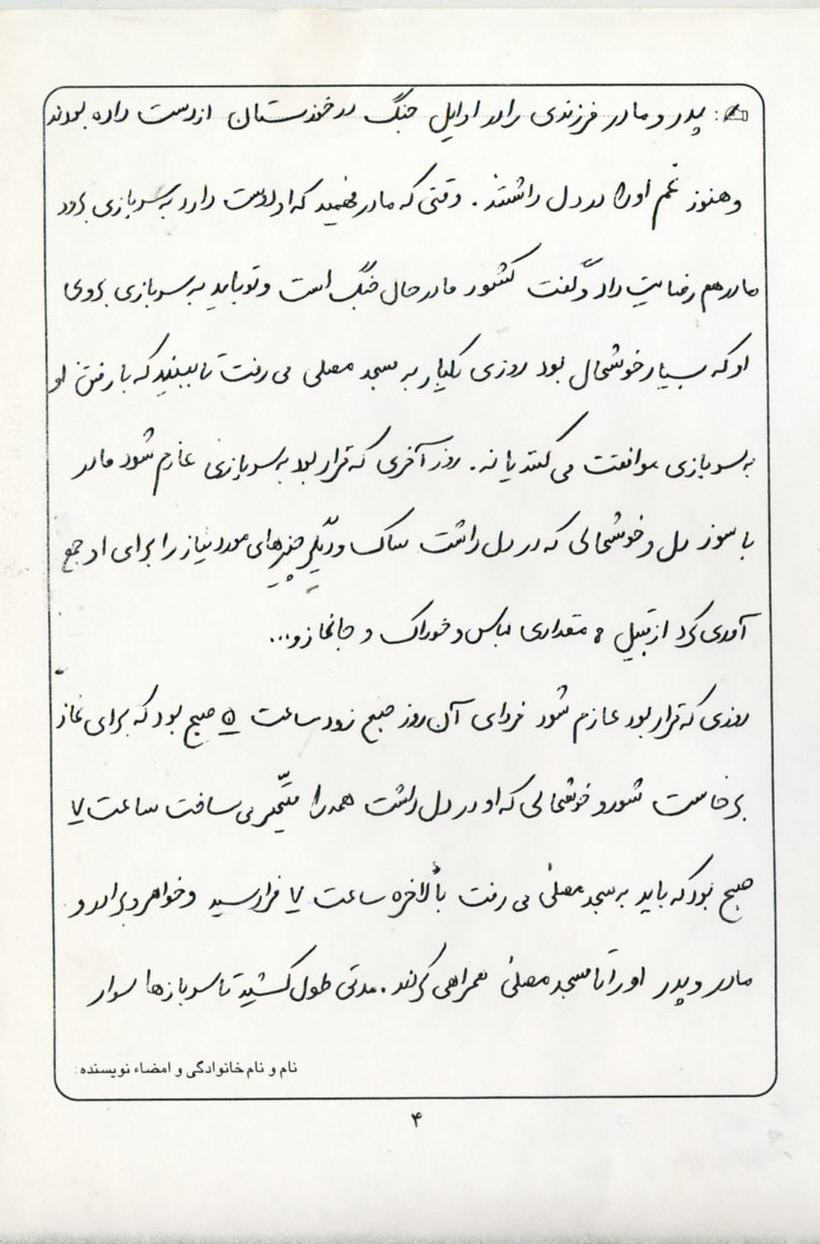 : پدر و مادر فرزندی را در اوایل جنگ در خوزستان از دست داده بودند
و هنوز غم او را در دل داشتند . وقتی که مادر فهمید که او دوست دارد به سربازی برود
مادر هم رضایت داد و گفت کشور ما در حال جنگ است و تو باید به سربازی بروی
او که بسیار خوشحال بود روزی یکبار به مسجد مصلی می رفت تا ببیند که با رفتن او
به سربازی موافقت می کنند یا نه . روز آخری که قرار بود به سربازی عازم شود مادر
با سوز دل و خوشحالی که در دل داشت ساک و دیگر چیزهای مورد نیاز را برای او جمع
آوری کرد از قبیل مقداری لباس و خوراک و جانماز و...
روزی که قرار بود عازم شود فردای آن روز صبح زود ساعت ۵ صبح بود که برای نماز
برخاست شور و خوشحالی که او در دل داشت همه را متحیر می ساخت ساعت ۷
صبح بود که باید به مسجد مصلی می رفت بالاخره ساعت ۷ فرا رسید و خواهر و برادر و
مادر و پدر او را تا مسجد مصلی همراهی کردند . مدتی طول کشید تا سربازها سوار
نام و نام خانوادگی و امضاء نویسنده:
۴